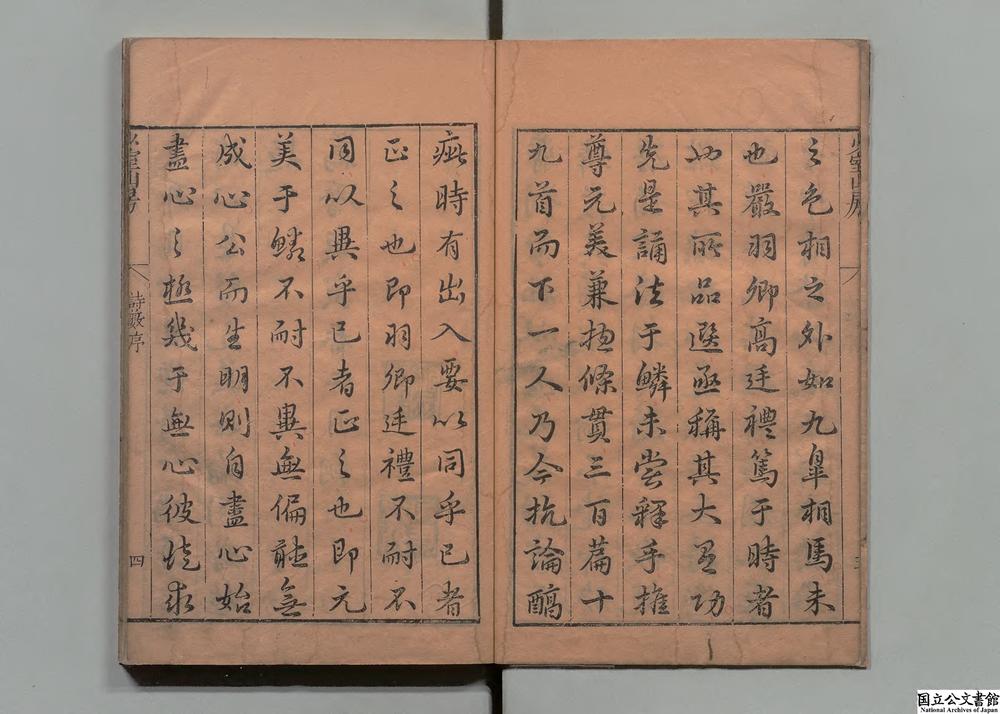 少室山房
之色相之外如九臯相馬未
也嚴羽卿高廷禮篤于時者
此其所品選亟稱其大有功
先是誦法于鱗未嘗釋手推
尊元美兼總條貫三百篇十
九首而下一人乃今抗論醇
疵時有出入要以同乎已者
正之也即羽卿廷禮不耐不
同以異乎已者正之也即元
美于鱗不耐不異無偏聽無
成心公而生明則自盡心始
盡心之極幾于無心彼徒求
少室山房
詩藪序
四
国立公文書館
National Archives of Japan